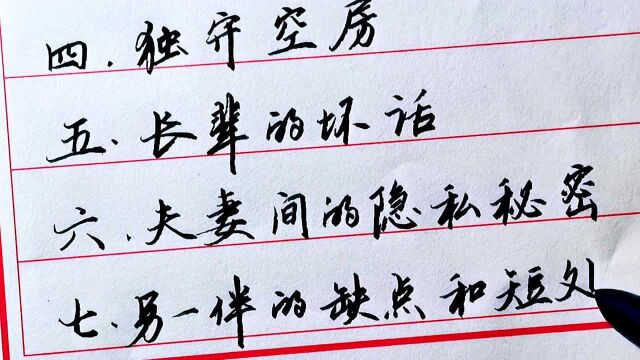 四.独守空房
五.长辈的坏话
六.夫妻间的隐私秘密
七.另一伴的缺点和短处